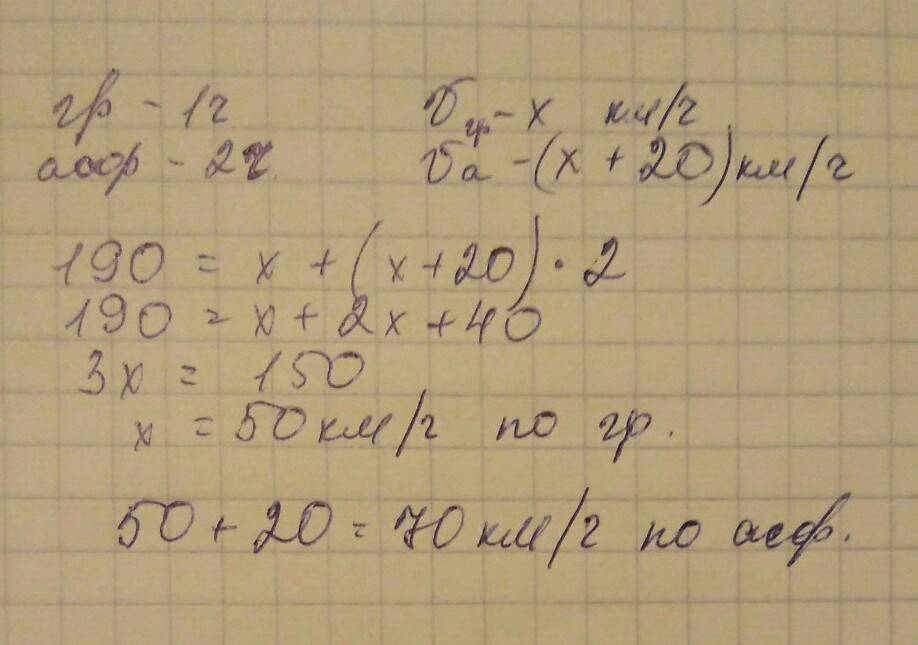 гр - 1ч Vгр - x км/ч
асф - 2ч. Vа - (x + 20) км/ч
190 = x + (x+20) · 2
190 = x + 2x + 40
3x = 150
x = 50 км/ч по гр.
50 + 20 = 70 км/ч по асф.